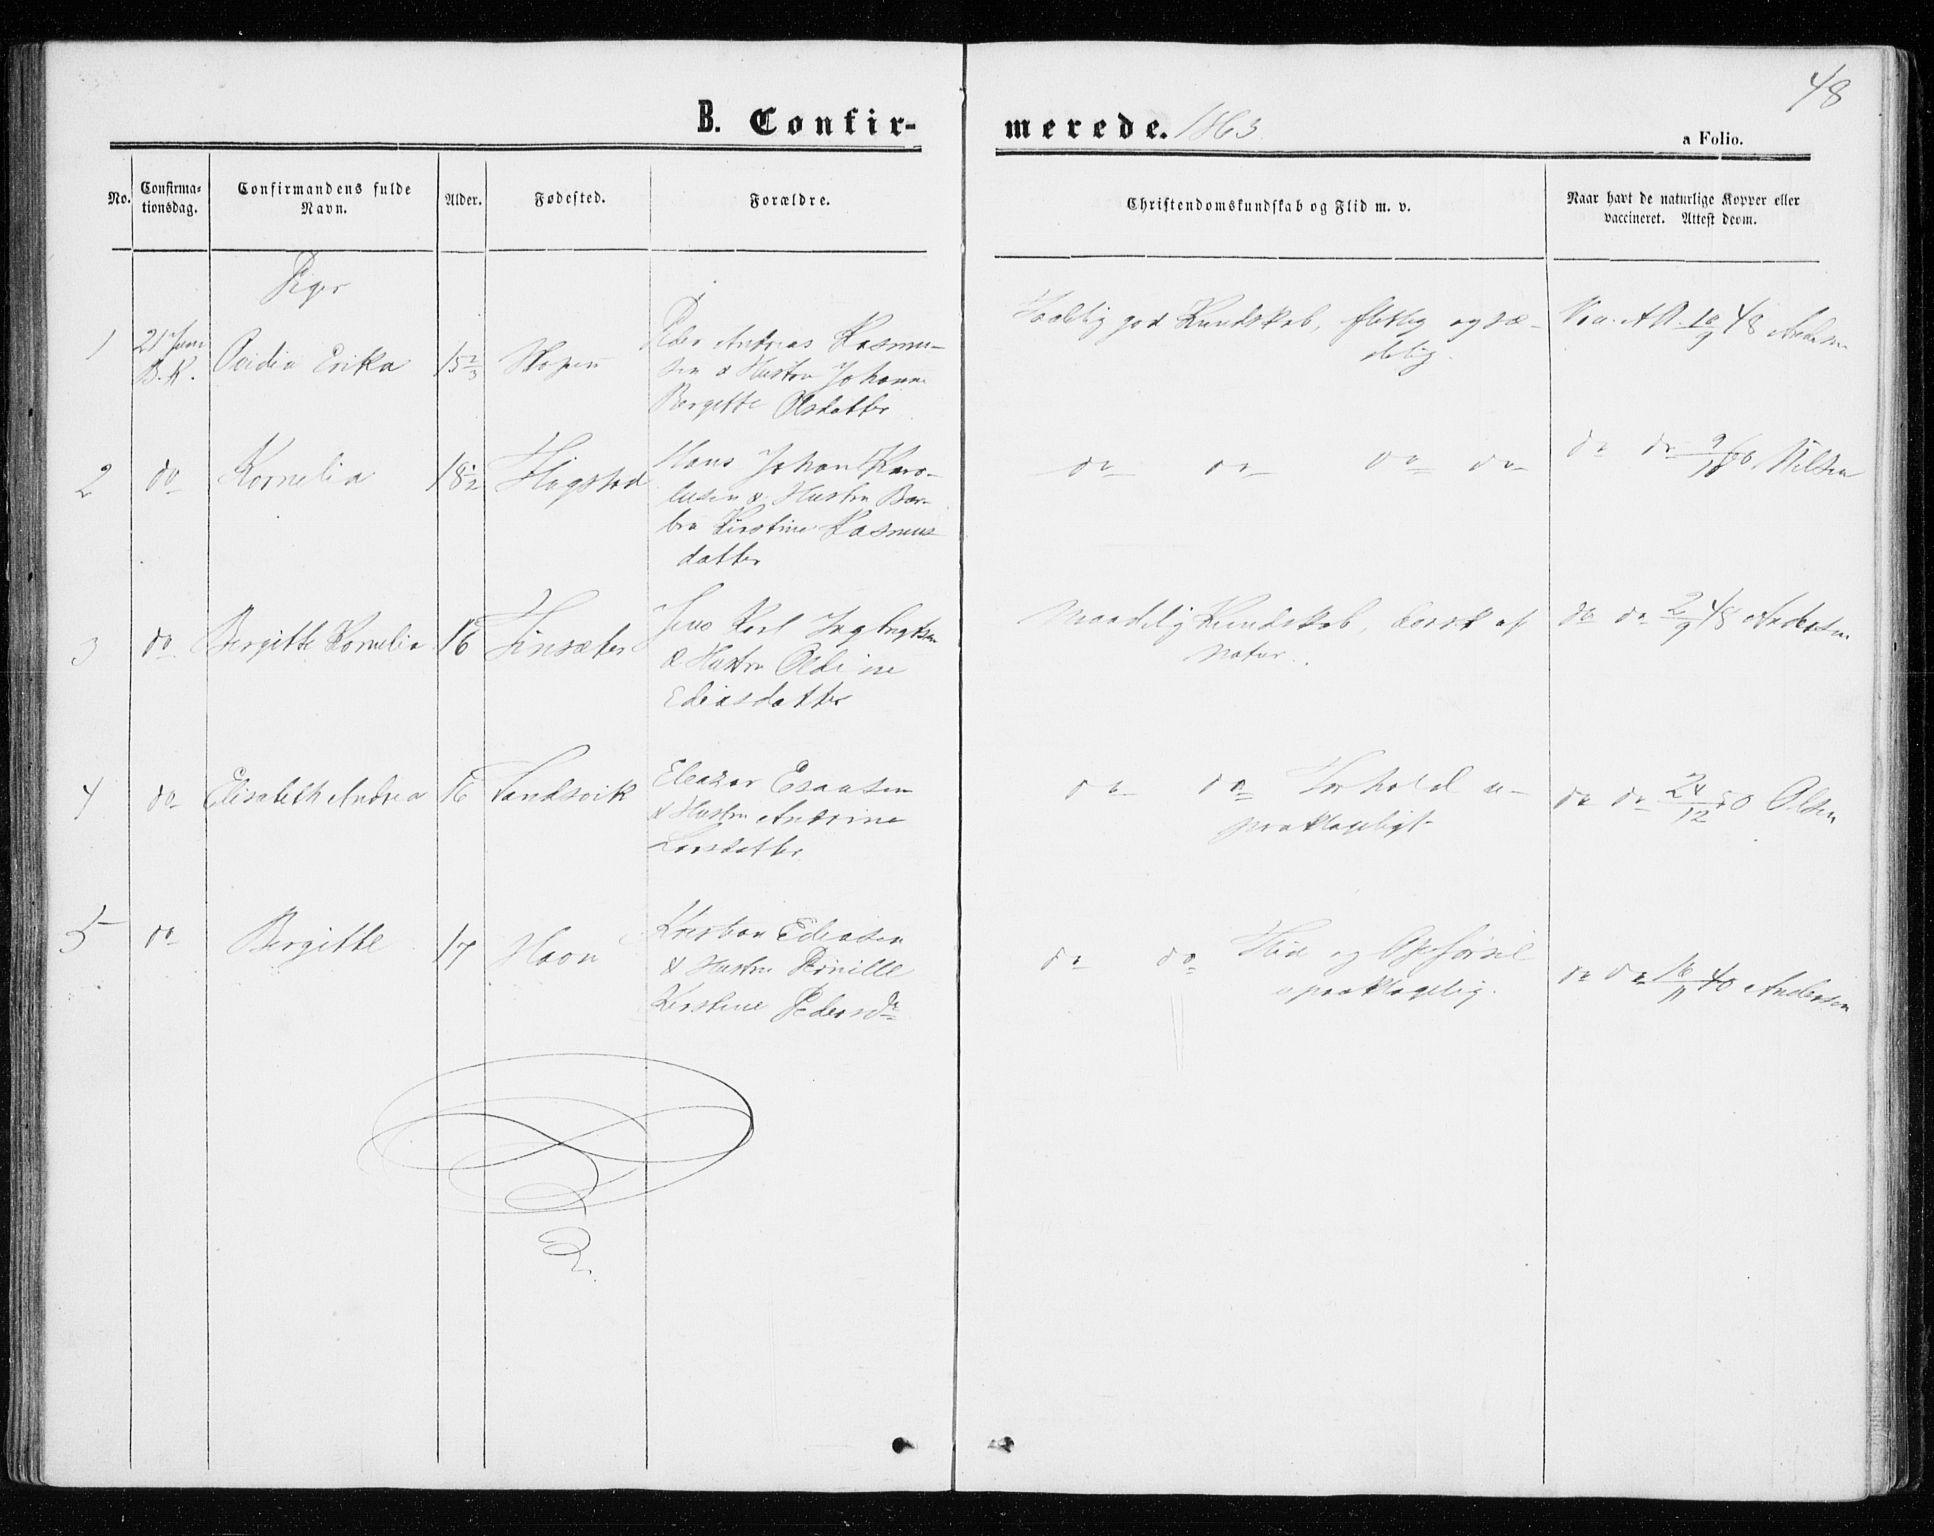 48
B. Confir-
merede. 1863
a Folio.
No.
Confirma-
tionsdag.
Confirmandens fulde
Navn.
Alder.
Fødested.
Forældre.
Christendomskundskab og Flid m. v.
Naar havt de naturlige Kopper eller
vaccineret. Attest derom.
Piger
1
21 Juni
B.K.
Erika
15 2/3
Peder Andreas Rasmu-
sen & Hustru Johanne
Bergitte Olsdatter
god Kundskab, flittig og sæ-
delig.
48
2
do
Kornelia
18 1/2
Hans Johan Karo-
lusen & Hustru Bar-
bra Kirstine Rasmus
datter
do do do do
do do Nilsen
3
do
Bergitte Kornelia
16
Finsæter
Jens Karl Ingbrigtsen
& Hustru
Ediasdatter
Maadelig Kundskab, dorsk af
Natur.
do do 2/9 48 Andersen
4
do
Elisabeth Andrea
16
Sandsvik
Eleazar Esaasen
& Hustru Andrine
Larsdatter
do do Forhold u-
paaklageligt
do do 24/12 50 Olsen
5
do
Bergitte
17
Havn
Kristian Ediasen
& Hustru Pernille
Kirstine Pedersdr
do do Flid og Opførsel
upaaklagelig.
do do 16/11 Andersen